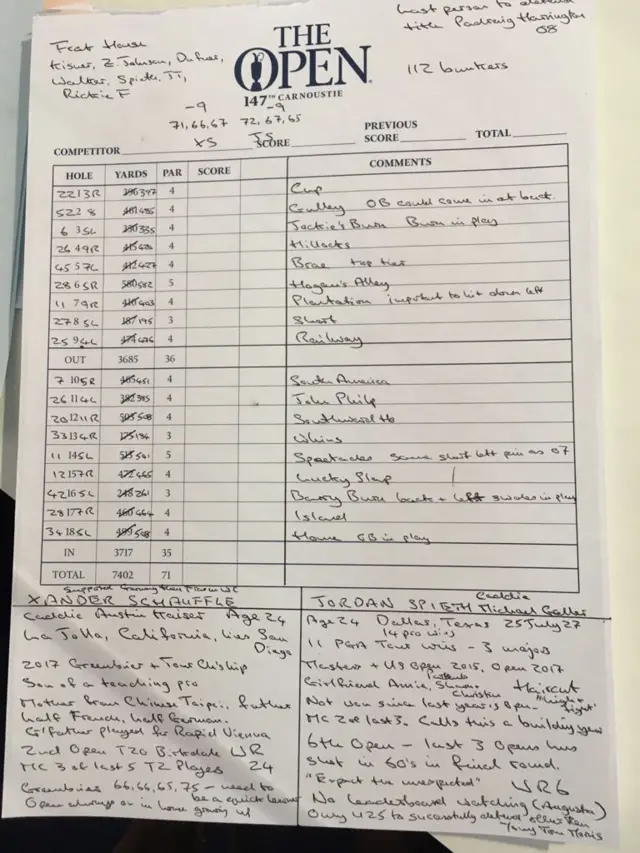 Last person to defend
title Padraig Harrington
08
Frat House
Kisner, Z. Johnson, Dufner,
Walker, Spieth, JT,
Rickie F
THE
OPEN
147TH CARNOUSTIE
112 bunkers
-9 -9
71,66,67 72,67,65
XS JS
COMPETITOR SCORE PREVIOUS SCORE TOTAL
HOLE YARDS PAR SCORE COMMENTS
22 1 3R 397 4 Cup
5 2 2 8 4 Gulley OB could come in at back
6 3 5L 335 4 Jockie's Burn Burn in play
26 4 9R 4 Hillocks
45 5 7L 427 4 Brae top tier
28 6 5R 580 582 5 Hogan's Alley
11 7 9R 403 4 Plantation important to hit down left
27 8 5L 187 195 3 Short
25 9 4L 4 Railway
OUT 3685 36
7 10 5R 451 4 South America
26 11 4L 4 John Philp
20 12 11R 508 4 Southward Ho
33 13 4R 3 Whins
11 14 5L 5 Spectacles same short left pin as 07
12 15 7R 465 4 Lucky Slap
42 16 5L 248 261 3 Barry Burn back + left swales in play
28 17 7R 464 4 Island
34 18 5L 4 Home OB in play
IN 3717 35
TOTAL 7402 71
XANDER SCHAUFFLE
Caddie Austin Kaiser Age 24
La Jolla, California, lives San
Diego
2017 Greenbrier + Tour Ch'ship
Son of a teaching pro
Mother from Chinese Taipei, father
half French, half German.
G/father played for Rapid Vienna
2nd Open T20 Birkdale WR
MC 3 of last 5 T2 Players 24
Greenbrier 66,66,65,75 - need to
be a quick learner
Open always on in house growing up
JORDAN SPIETH Caddie Michael Greller
Age 24 Dallas, Texas 25 July 27
14 pro wins
11 PGA Tour wins - 3 majors
Masters + US Open 2015, Open 2017
Parents
Girlfriend Annie, Shawn, Christine Haircut
"high + tight"
Not won since last year's Open -
MC 2 of last 3. Calls this a building year
6th Open - last 3 Opens has
shot in 60's in final round.
"Expect the unexpected" WR6
No leaderboard watching (Augusta)
Only 4 25 to successfully defend other than
Young Tom Morris